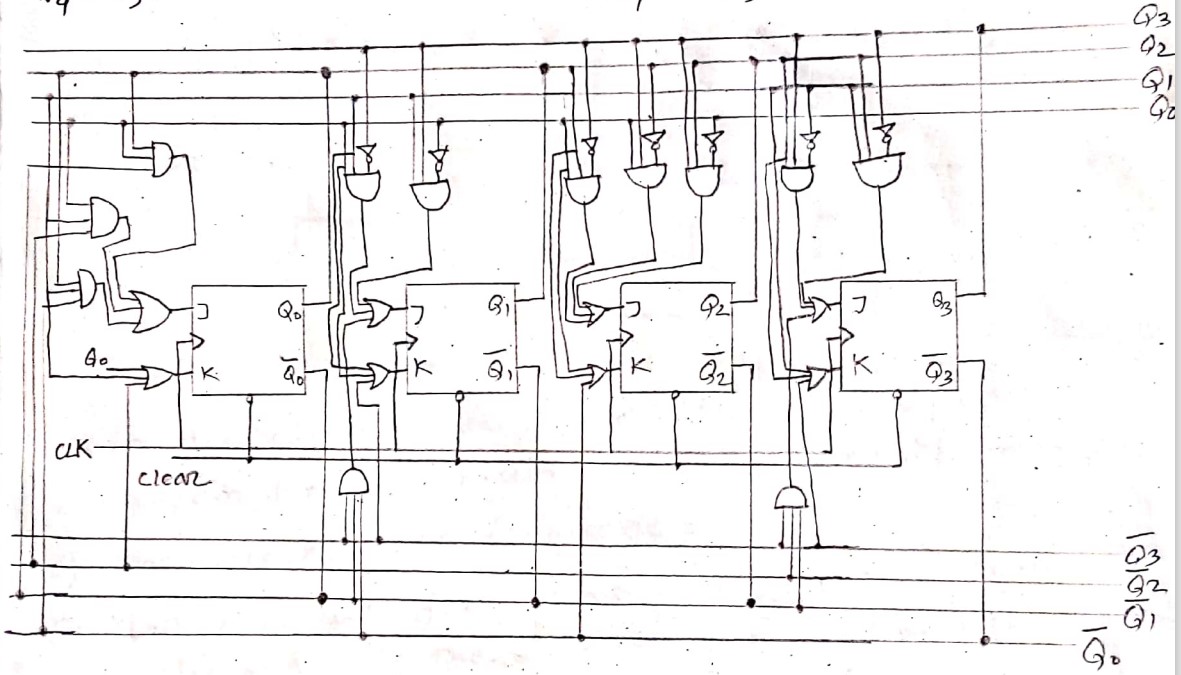 Q3
Q2
Q1
Q0
J Q0
K Q̅0
Q0
J Q1
K Q̅1
J Q2
K Q̅2
J Q3
K Q̅3
CLK
Clear
Q̅3
Q̅2
Q̅1
Q̅0